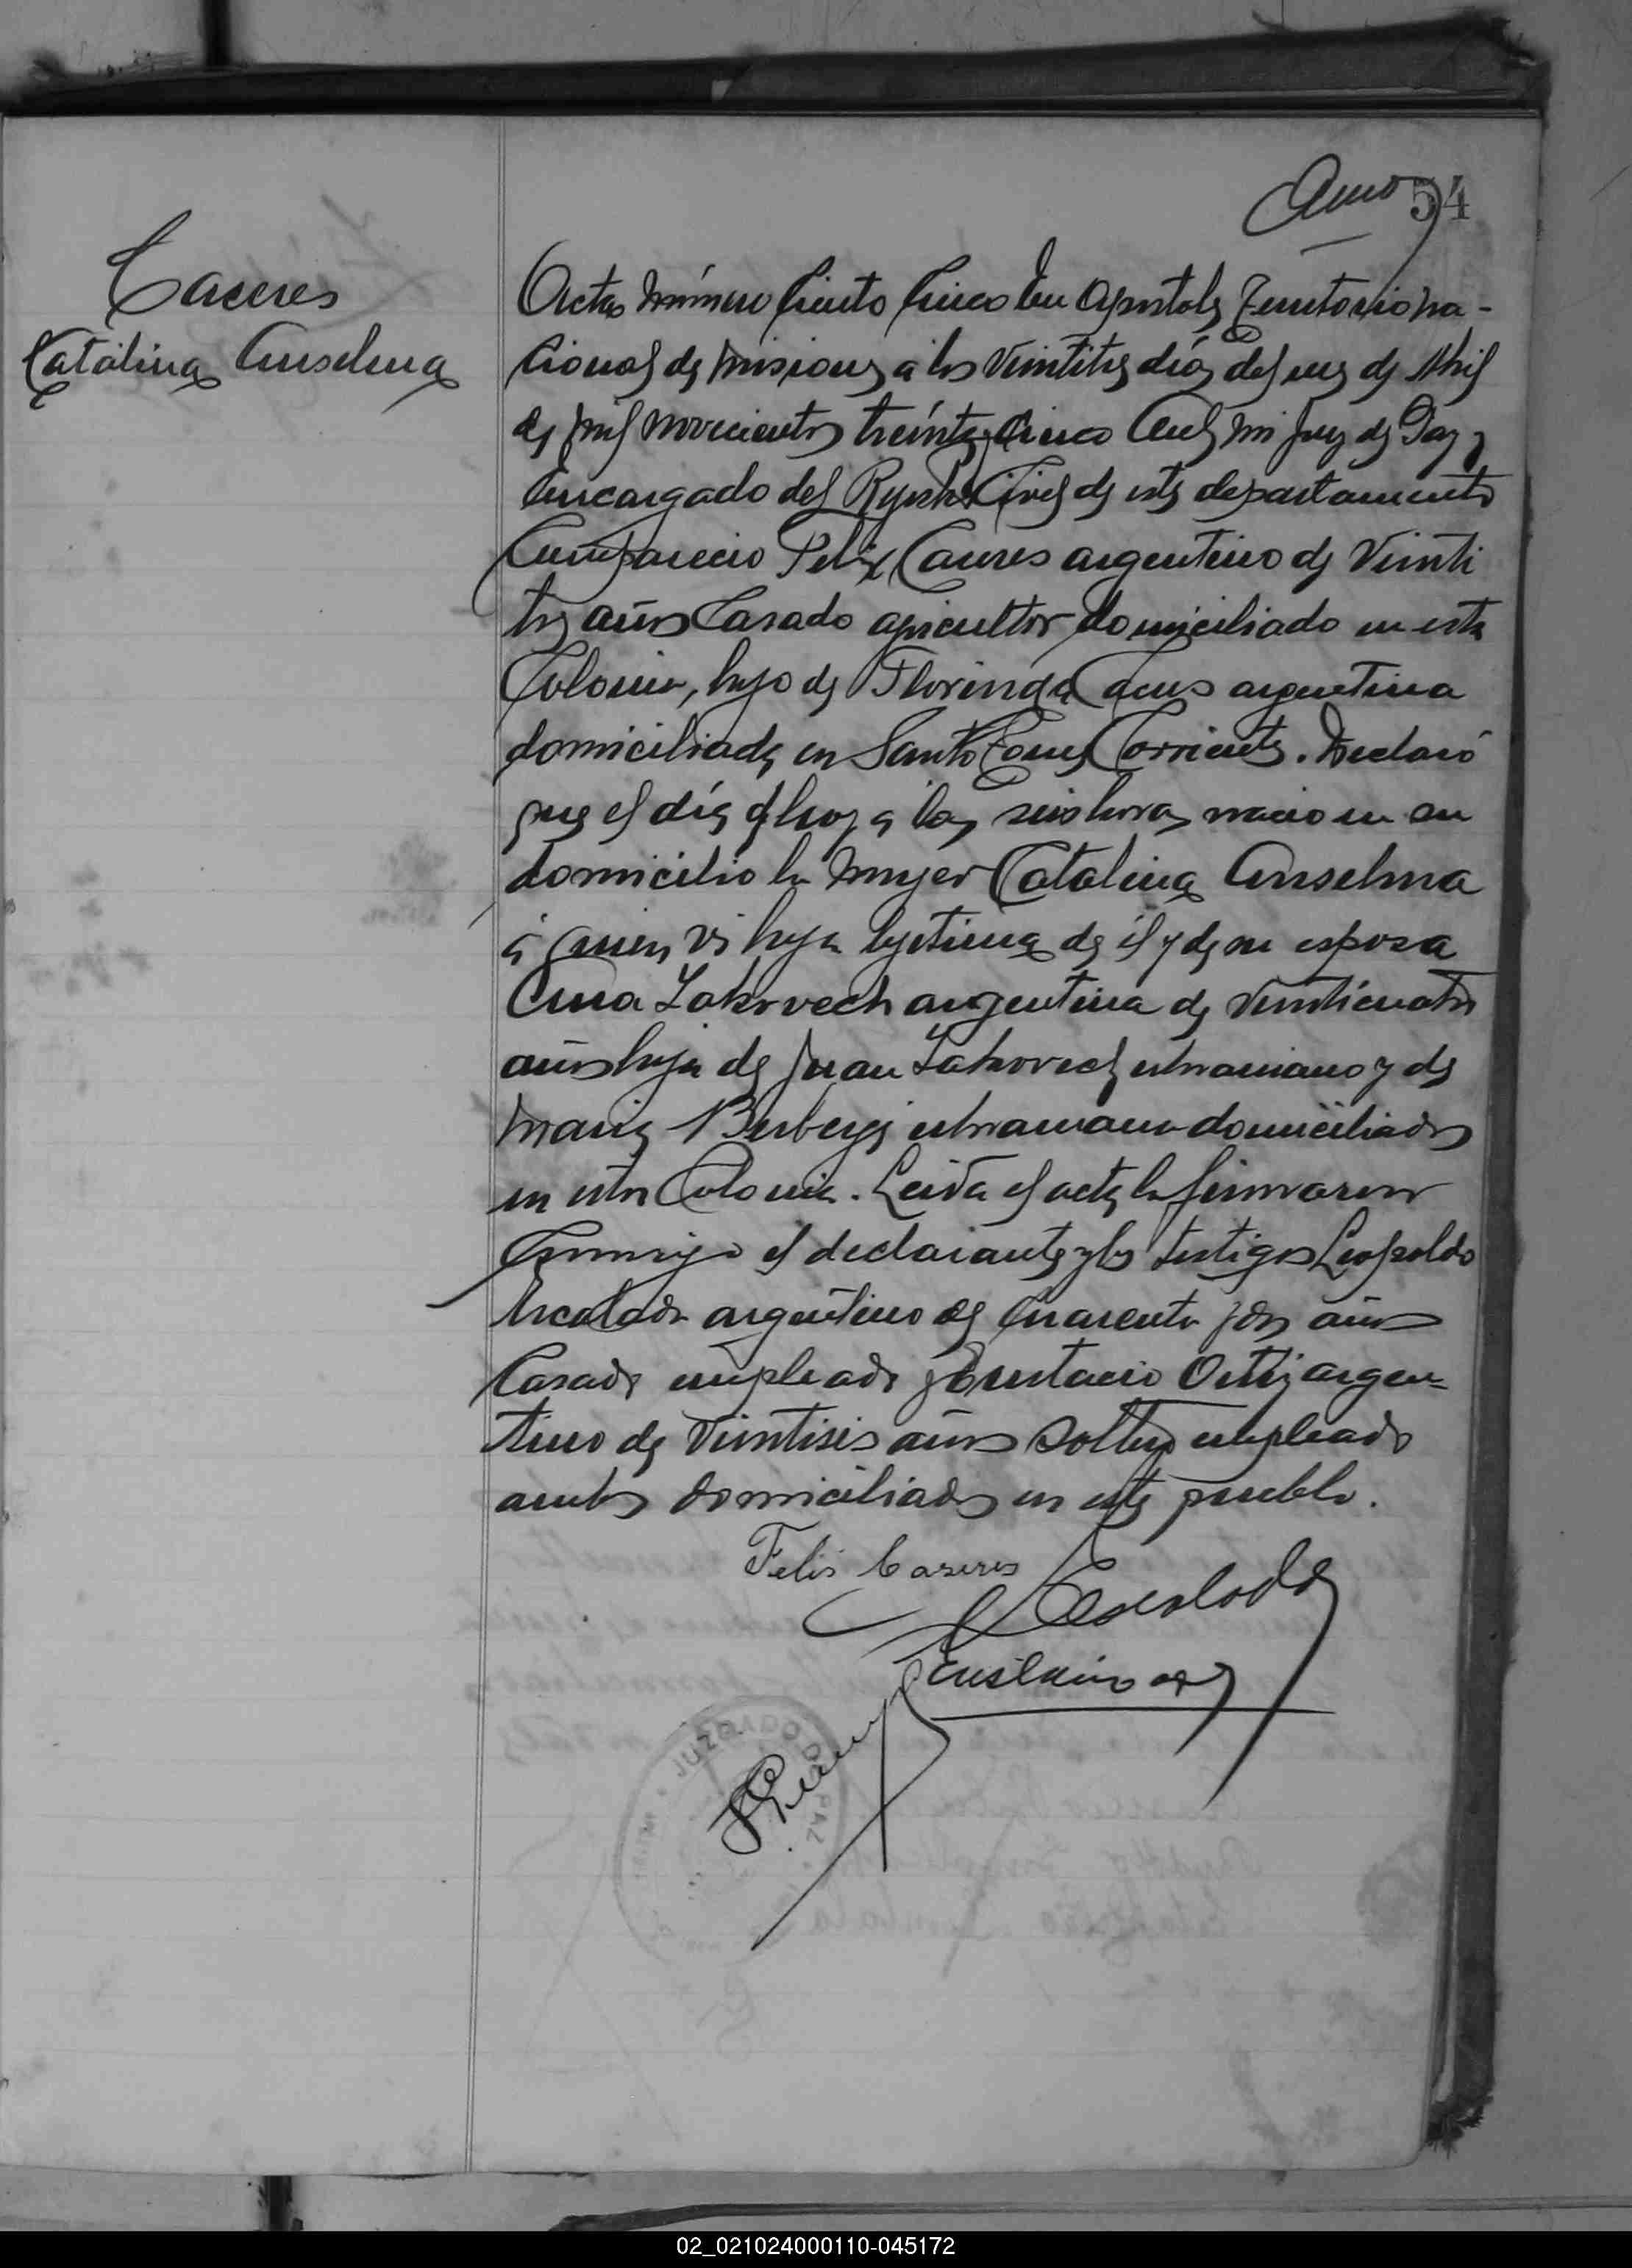 54
Caceres
Catalina Anselma
Acta número Ciento Cinco En Apostoles Territorio na-
cional de Misiones a los Veintitres días del mes de Abril
de mil novecientos treinta y cinco Ante mi Juez de Paz y
Encargado del Registro Civil de este departamento
Compareció Felix Caceres argentino de Veinti
tres años Casado agricultor domiciliado en esta
Colonia, hijo de Florinda Caceres argentina
domiciliada en Santo Tomé Corrientes. Declaró
que el día de hoy a las seis horas nacio en su
domicilio la mujer Catalina Anselma
á quien vi hija legitima de él y de su esposa
Ana Zakovech argentina de Veinticuatro
años hija de Juan Zakovech ukraniano y de
Maria ukraniana domiciliados
en esta Colonia. Leida el acta la firmaron
Conmigo el declarante y los testigos Leopoldo
Escalada argentino de Cuarenta y dos años
Casado empleado y Eustacio Ortiz argen-
tino de Veintiseis años Soltero empleado
ambos domiciliados en este pueblo.
Felis Caseres
L Escalada
JUZGADO DE PAZ
02_021024000110-045172